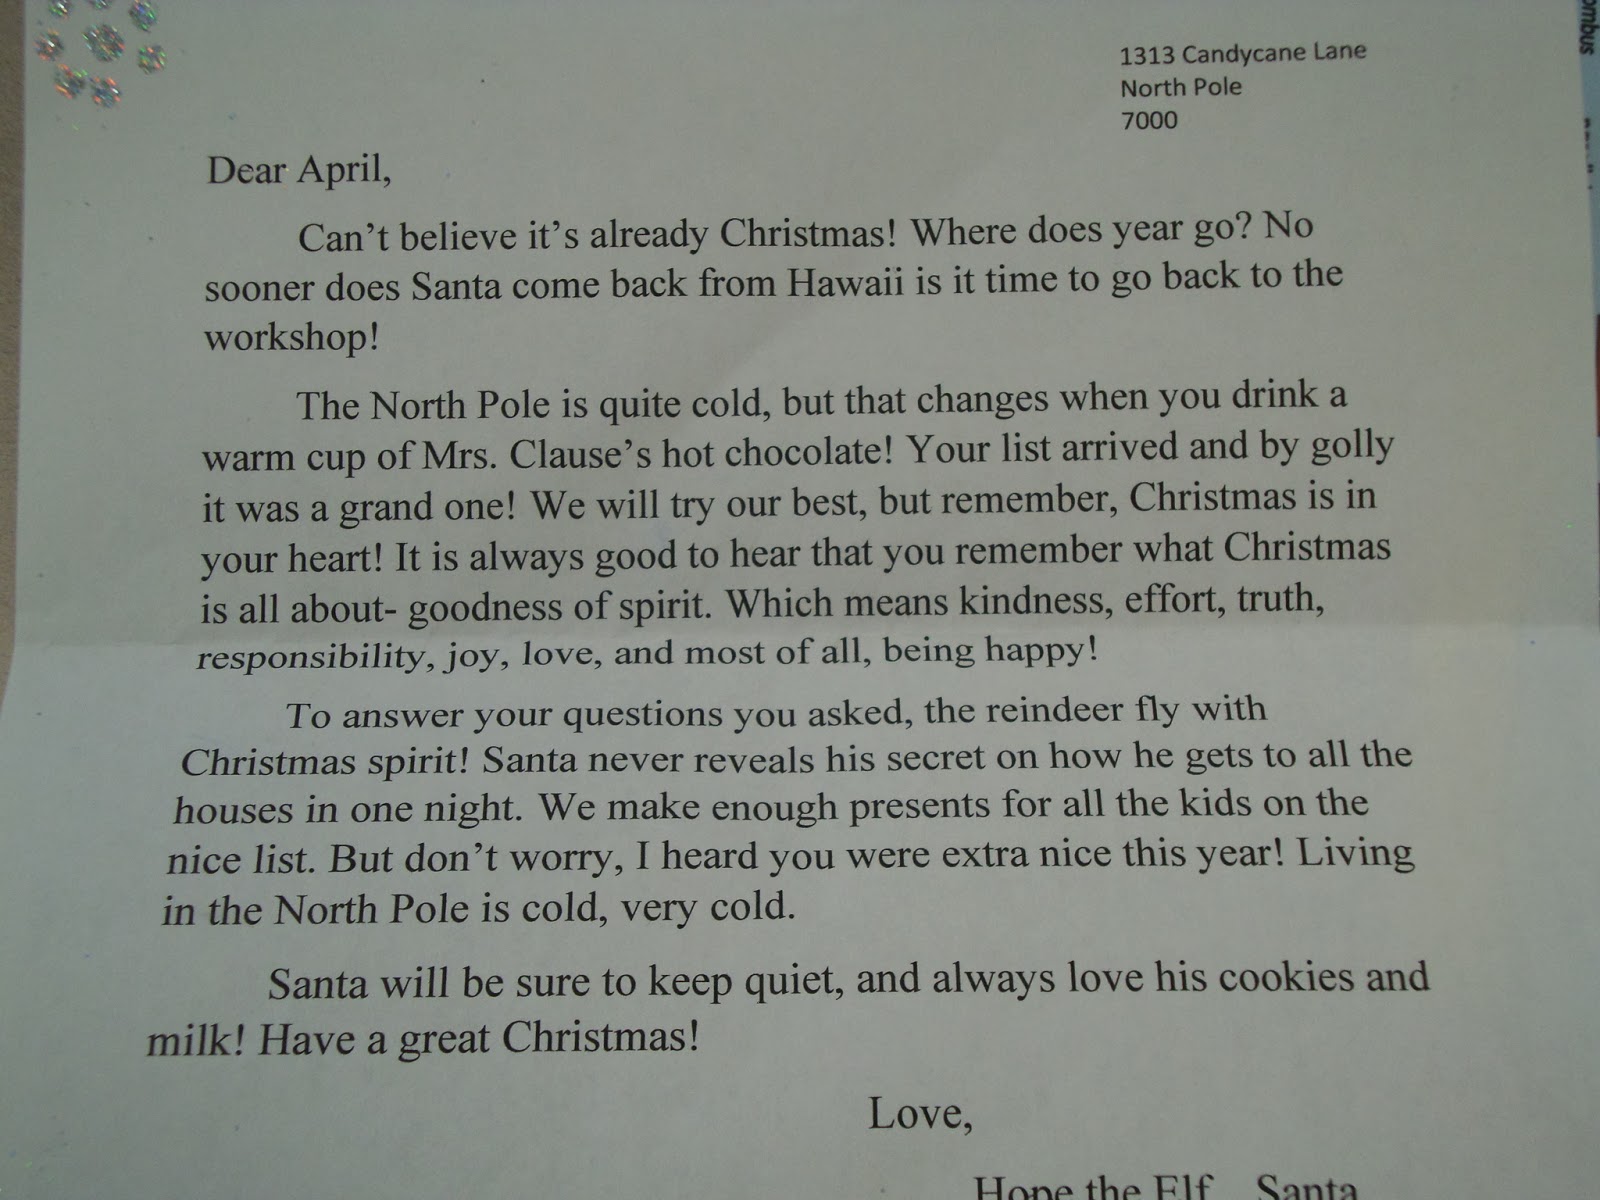 1313 Candycane Lane
North Pole
7000
Dear April,
Can't believe it's already Christmas! Where does year go? No
sooner does Santa come back from Hawaii is it time to go back to the
workshop!
The North Pole is quite cold, but that changes when you drink a
warm cup of Mrs. Clause's hot chocolate! Your list arrived and by golly
it was a grand one! We will try our best, but remember, Christmas is in
your heart! It is always good to hear that you remember what Christmas
is all about- goodness of spirit. Which means kindness, effort, truth,
responsibility, joy, love, and most of all, being happy!
To answer your questions you asked, the reindeer fly with
Christmas spirit! Santa never reveals his secret on how he gets to all the
houses in one night. We make enough presents for all the kids on the
nice list. But don't worry, I heard you were extra nice this year! Living
in the North Pole is cold, very cold.
Santa will be sure to keep quiet, and always love his cookies and
milk! Have a great Christmas!
Love,
Hope the Elf Santa
ombus